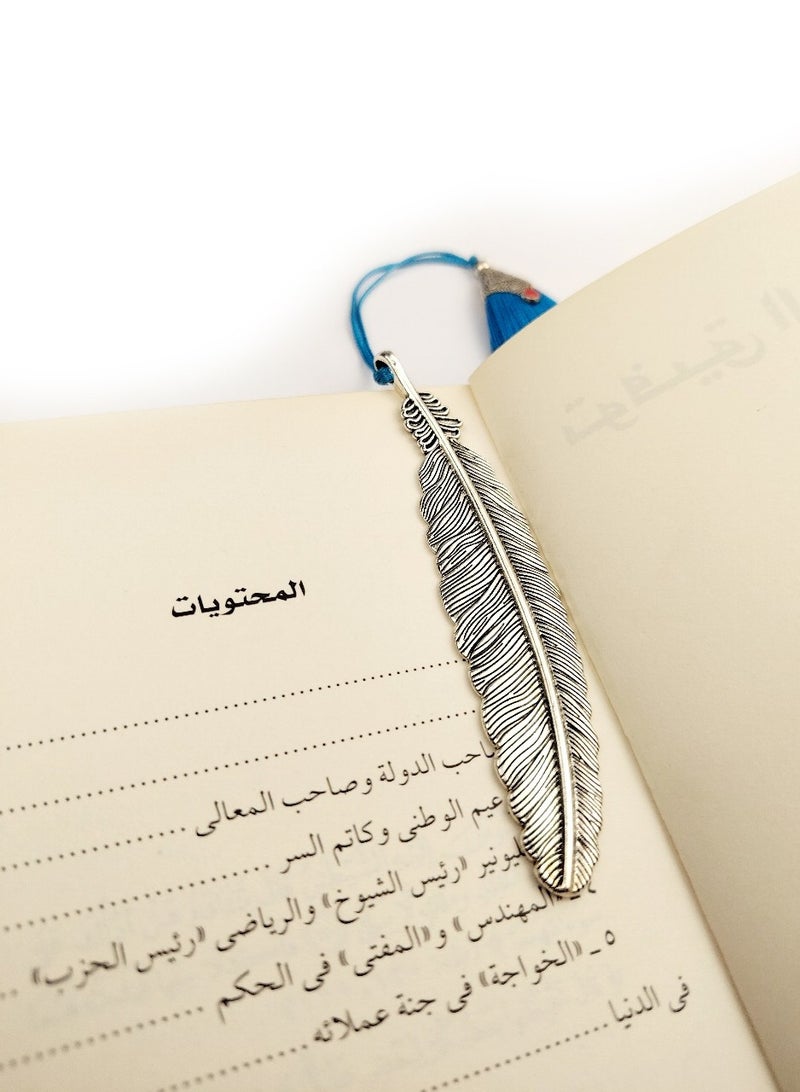 المحتويات
احب الدولة وصاحب المعالى
عيم الوطنى وكاتم السر
ليونير «رئيس الشيوخ» والرياضى «رئيس الحزب»
«المهندس» و«المفتى» فى الحكم
٥ ـ «الخواجة» فى جنة عملائه
فى الدنيا